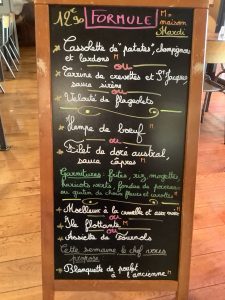 12€90 FORMULE M = maison
Mardi
* Cassolette de "patates", champignons
et lardons M
ou
* Terrine de crevettes et St Jacques,
sauce sirène
ou
* Velouté de flageolets
* Hampe de boeuf M
ou
* Filet de doré austral,
sauce câpres M
Garnitures : frites, riz, mogettes,
haricots verts, fondue de poireaux
ou gratin de choux fleurs et carottes M
* Moelleux à la cannelle et aux noix
ou
* Ile flottante M
ou
* Assiette de Tournols
Cette semaine le chef vous
propose
* Blanquette de poulet
à l'ancienne M